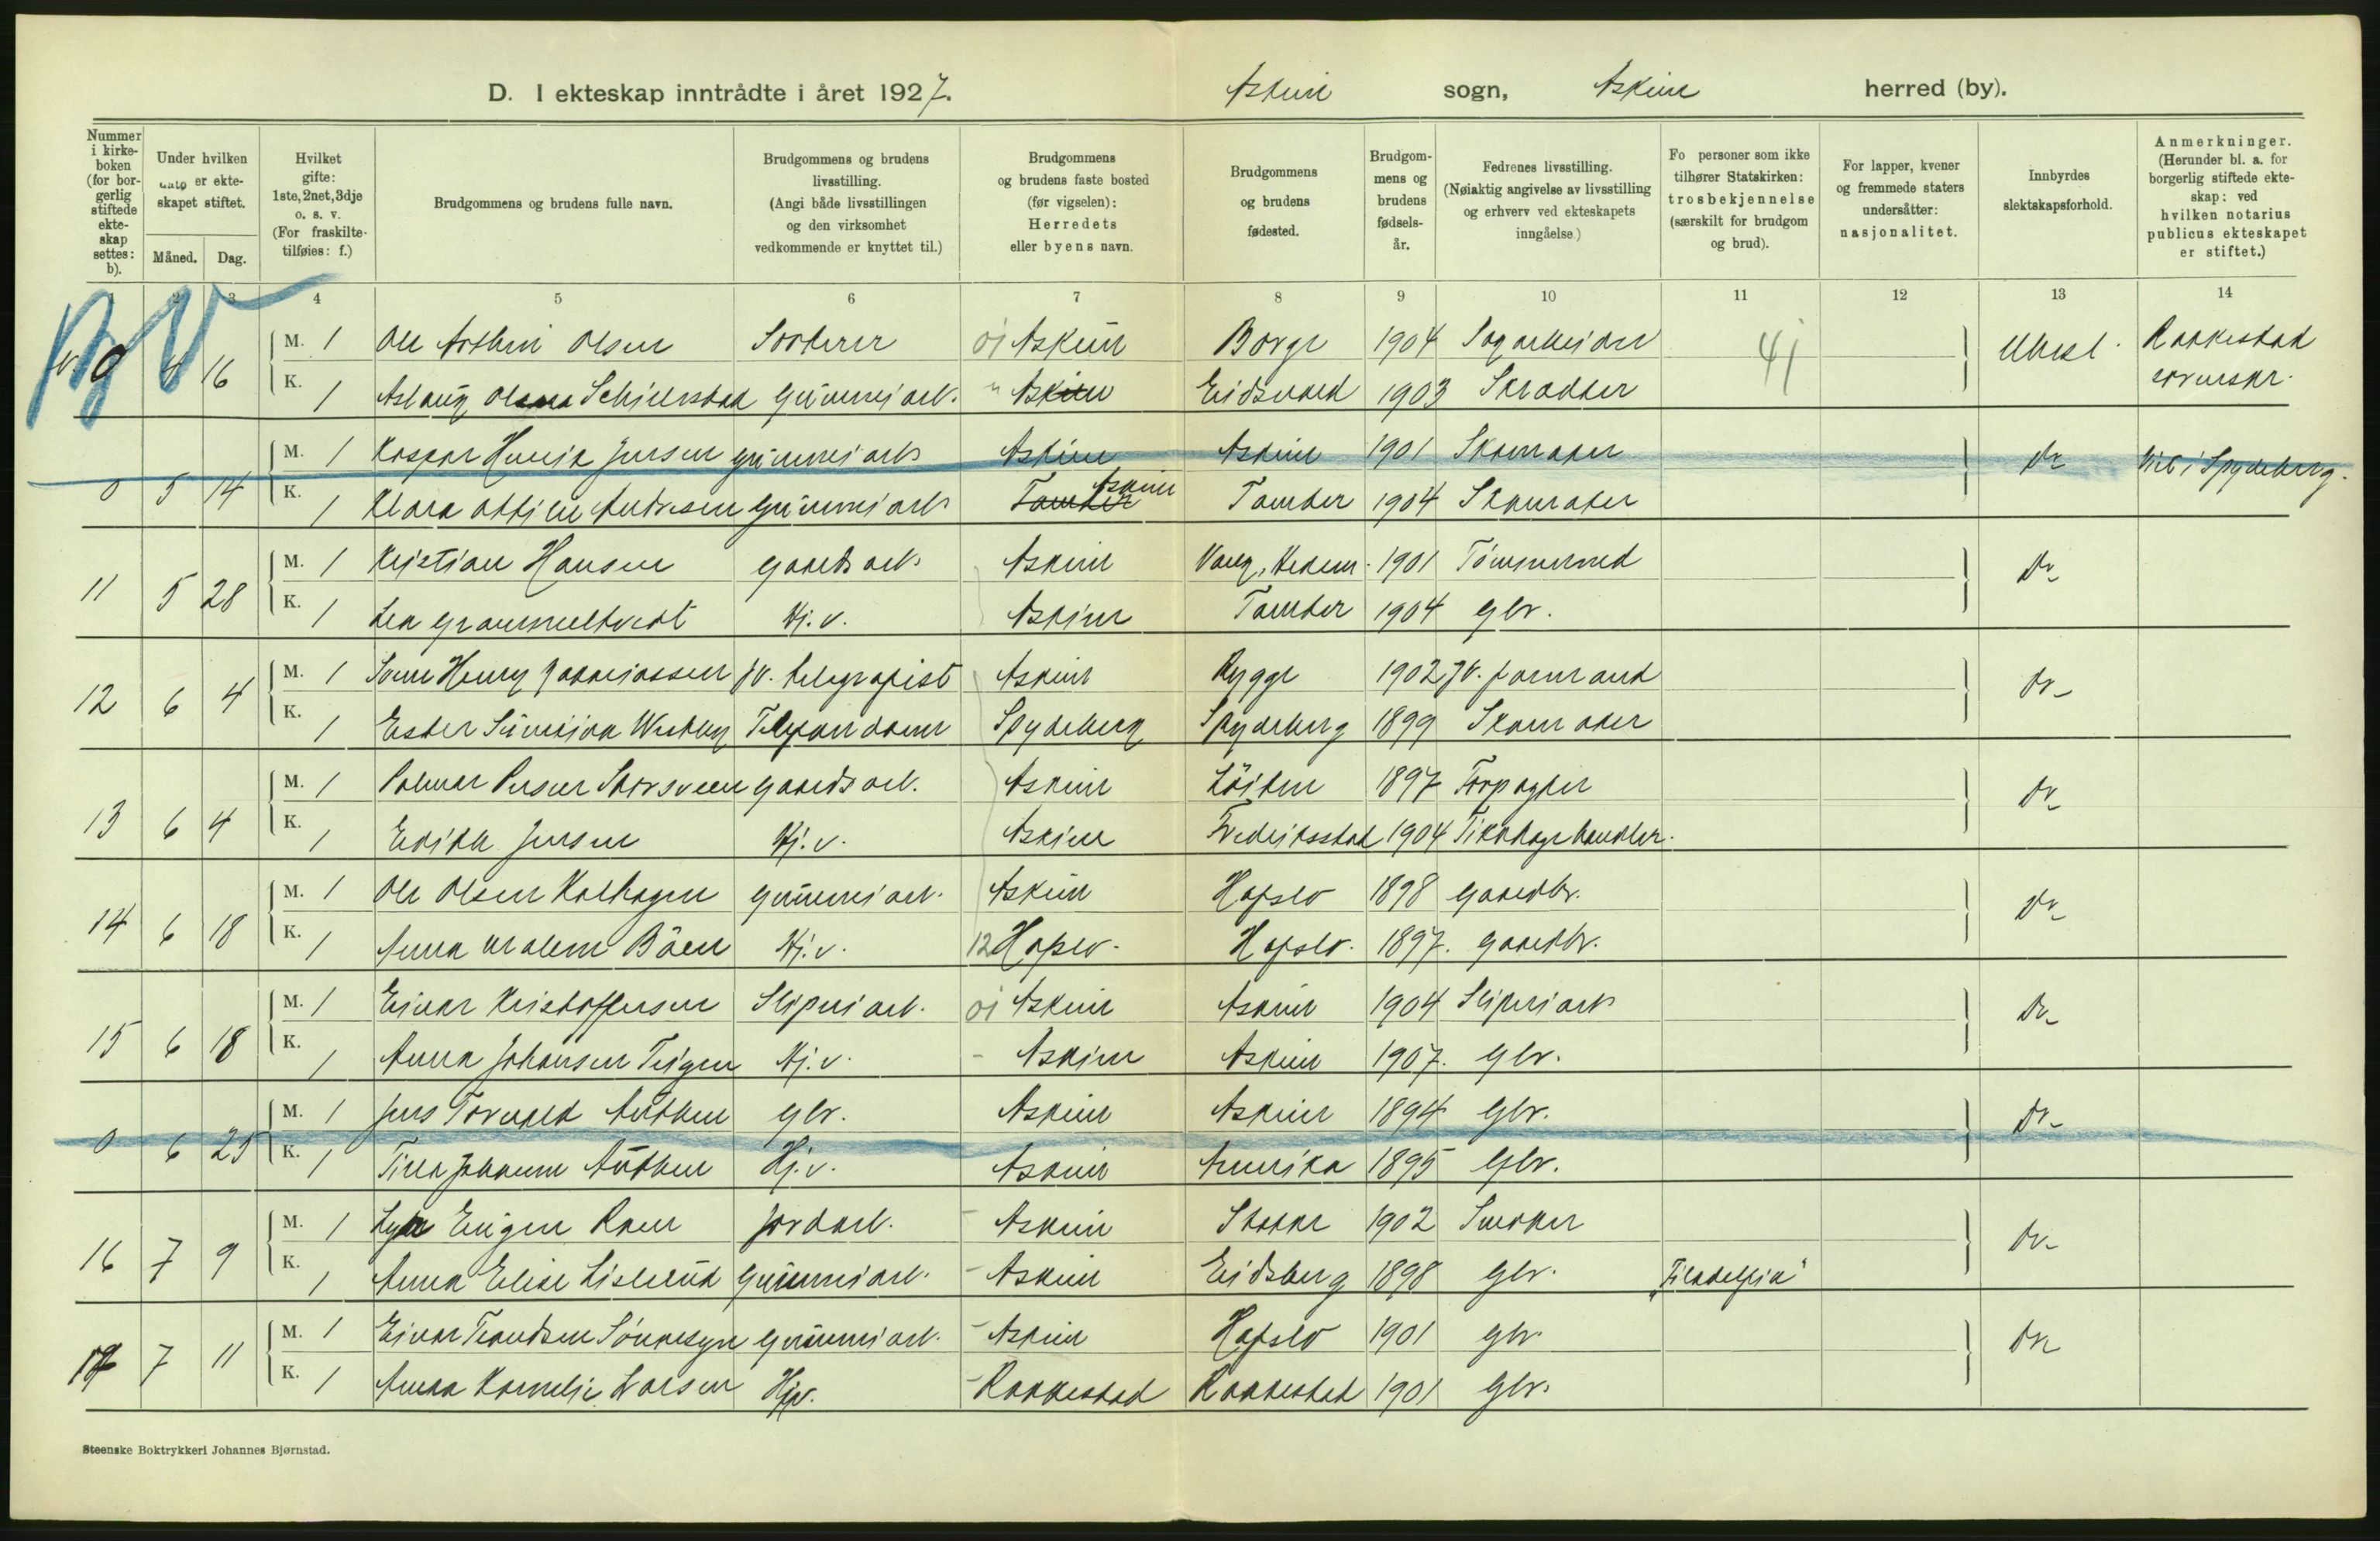 D. I ekteskap inntrådte i året 1927. Askim sogn, Askim herred (by).
Nummer i kirkeboken (for borgerlig stiftede ekteskap settes: b).
Under hvilken dato er ekteskapet stiftet.
Måned. Dag.
Hvilket gifte: 1ste, 2net, 3dje o. s. v. (For fraskilte tilføies: f.)
Brudgommens og brudens fulle navn.
Brudgommens og brudens livsstilling. (Angi både livsstillingen og den virksomhet vedkommende er knyttet til.)
Brudgommens og brudens faste bosted (før vigselen): Herredets eller byens navn.
Brudgommens og brudens fødested.
Brudgommens og brudens fødselsår.
Fedrenes livsstilling. (Nøiaktig angivelse av livsstilling og erhverv ved ekteskapets inngåelse.)
Fo personer som ikke tilhører Statskirken: trosbekjennelse (særskilt for brudgom og brud).
For lapper, kvener og fremmede staters undersåtter: nasjonalitet.
Innbyrdes slektskapsforhold.
Anmerkninger. (Herunder bl. a. for borgerlig stiftede ekteskap: ved hvilken notarius publicus ekteskapet er stiftet.)
1 2 3 4 5 6 7 8 9 10 11 12 13 14
M. 1 Ole Arthur Olsen Sorterer 01 Askim Borge 1904 Sagarbeider 41 Ubesl. Rakkestad sorenskr.
9 4 16 K. 1 Aslaug Olena Schjerstad Gummiarb. " Askim Eidsvold 1903 Skrædder
M. 1 Kaspar Henrik Jensen gummiarb Askim Askim 1901 Skomaker Do Viet i Spydeberg.
0 5 14 K. 1 Klara Ottilie Andresen Gummiarb Tomter Askim Tomter 1904 Skomaker
M. 1 Kristian Hansen gaardsarb. Askim Vang, Hedem. 1901 Tømmermand Do
11 5 28 K. 1 Lea Grammeltvedt Hj.v. Askim Tomter 1904 Gbr.
M. 1 Henry Zakkariassen Jv. telegrafist Askim Rygge 1902 Jv. formand Do
12 6 4 K. 1 Ester Westby Telefondame Spydeberg Spydeberg 1899 Skomaker
M. 1 Palmar Storsveen gaardsarb. Askim Löiten 1897 Forpagter Do
13 6 4 K. 1 Edith Jensen Hj.v. Askim Fredriksstad 1904
M. 1 Ole Olsen Kalhagen gummiarb. Askim Hafslo 1898 Gaardbr. Do
14 6 18 K. 1 Anna Malene Böen Hj.v. 12 Hafslo. Hafslo. 1897. Gaardbr.
M. 1 Einar Kristoffersen Sliperiarb. 01 Askim Askim 1904 Sliperiarb Do
15 6 18 K. 1 Anna Johansen Teigen Hj.v. - Askim Askim 1907. Gbr.
M. 1 Jens Torvald Gbr. Askim Askim 1894 Gbr. Do
0 6 25 K. 1 Hj.v. Askim Amerika 1895 Gbr.
M. 1 Eugen Roen Jordarb. - Askim Stokke 1902 Snekker Do
16 7 9 K. 1 Anna Elise Lislerud Gummiarb. - Askim Eidsberg 1898 Gbr. "Filadelfia"
M. 1 Einar Sønnesyn Gummiarb. - Askim Hafslo 1901 Gbr Do
17 7 11 K. 1 Anna Kornelie Larsen Hjv. - Rakkestad Rakkestad 1901 Gbr.
Steenske Boktrykkeri Johannes Bjørnstad.